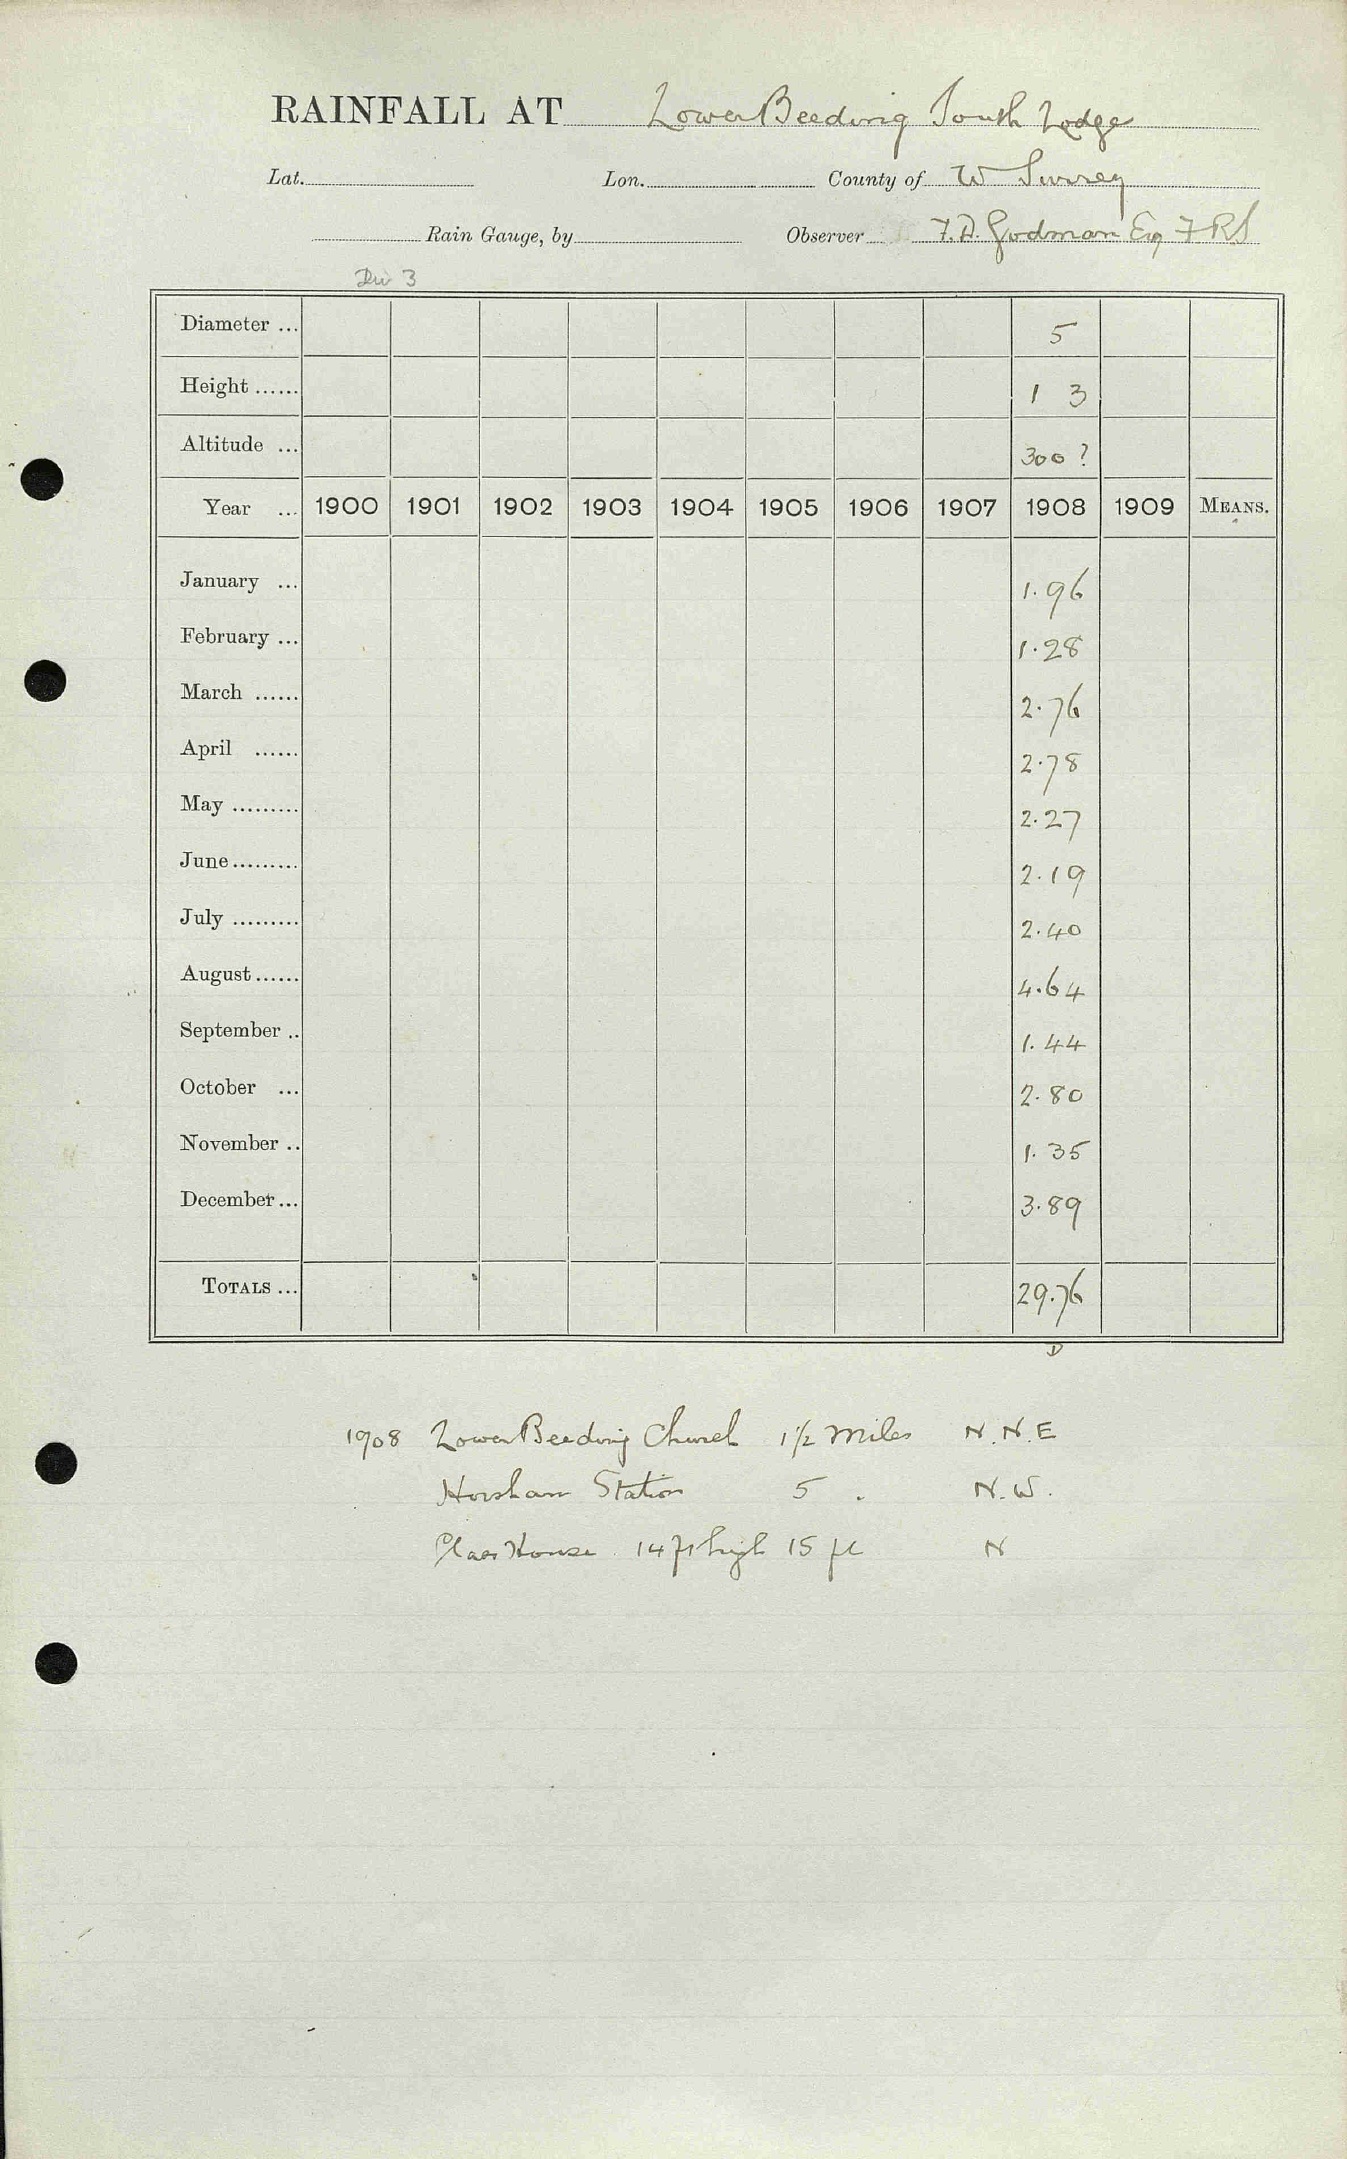 RAINFALL AT Lower Beeding South Lodge
Lat. Lon. County of W Surrey
Rain Gauge, by Observer F. D. Godman Esq FRS
Div 3
Diameter ... 5
Height ...... 1 3
Altitude ... 300 ?
Year ... 1900 1901 1902 1903 1904 1905 1906 1907 1908 1909 MEANS.
January ... 1.96
February ... 1.28
March ...... 2.76
April ...... 2.78
May ......... 2.27
June ......... 2.19
July ......... 2.40
August ...... 4.64
September .. 1.44
October ... 2.80
November .. 1.35
December ... 3.89
TOTALS ... 29.76
D
1908 Lower Beeding Church 1½ Miles N.N.E
Horsham Station 5 . N.W.
Glass House 14 ft high 15 ft N